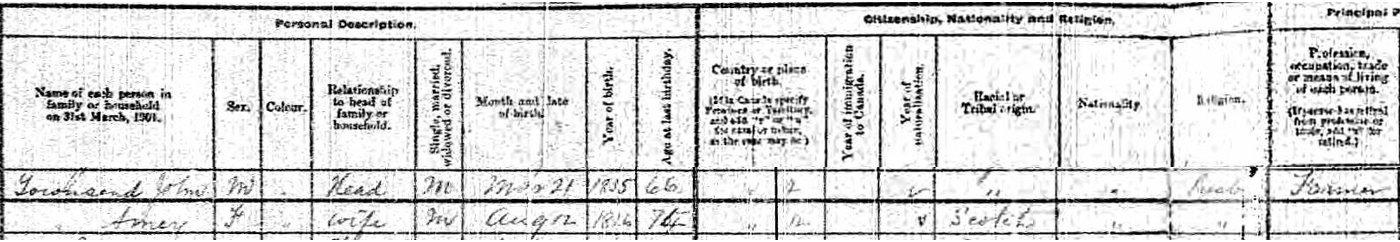 Personal Description. Citizenship, Nationality and Religion. Principal
Name of each person in family or household on 31st March, 1901.
Sex.
Colour.
Relationship to head of family or household.
Single, married, widowed or divorced.
Month and date of birth.
Year of birth.
Age at last birthday.
Country or place of birth.
(If in Canada specify Province or Territory, and add "r" or "u" for rural or urban, as the case may be.)
Year of immigration to Canada.
Year of naturalization.
Racial or Tribal origin.
Nationality.
Religion.
Profession, occupation, trade or means of living of each person.
(If person has retired from profession or trade, add "r" for retired.)
Townsend John M " Head M Mar 21 1835 66 " r " " Presb Farmer
" Amey F " Wife M Aug " r Scotch " "